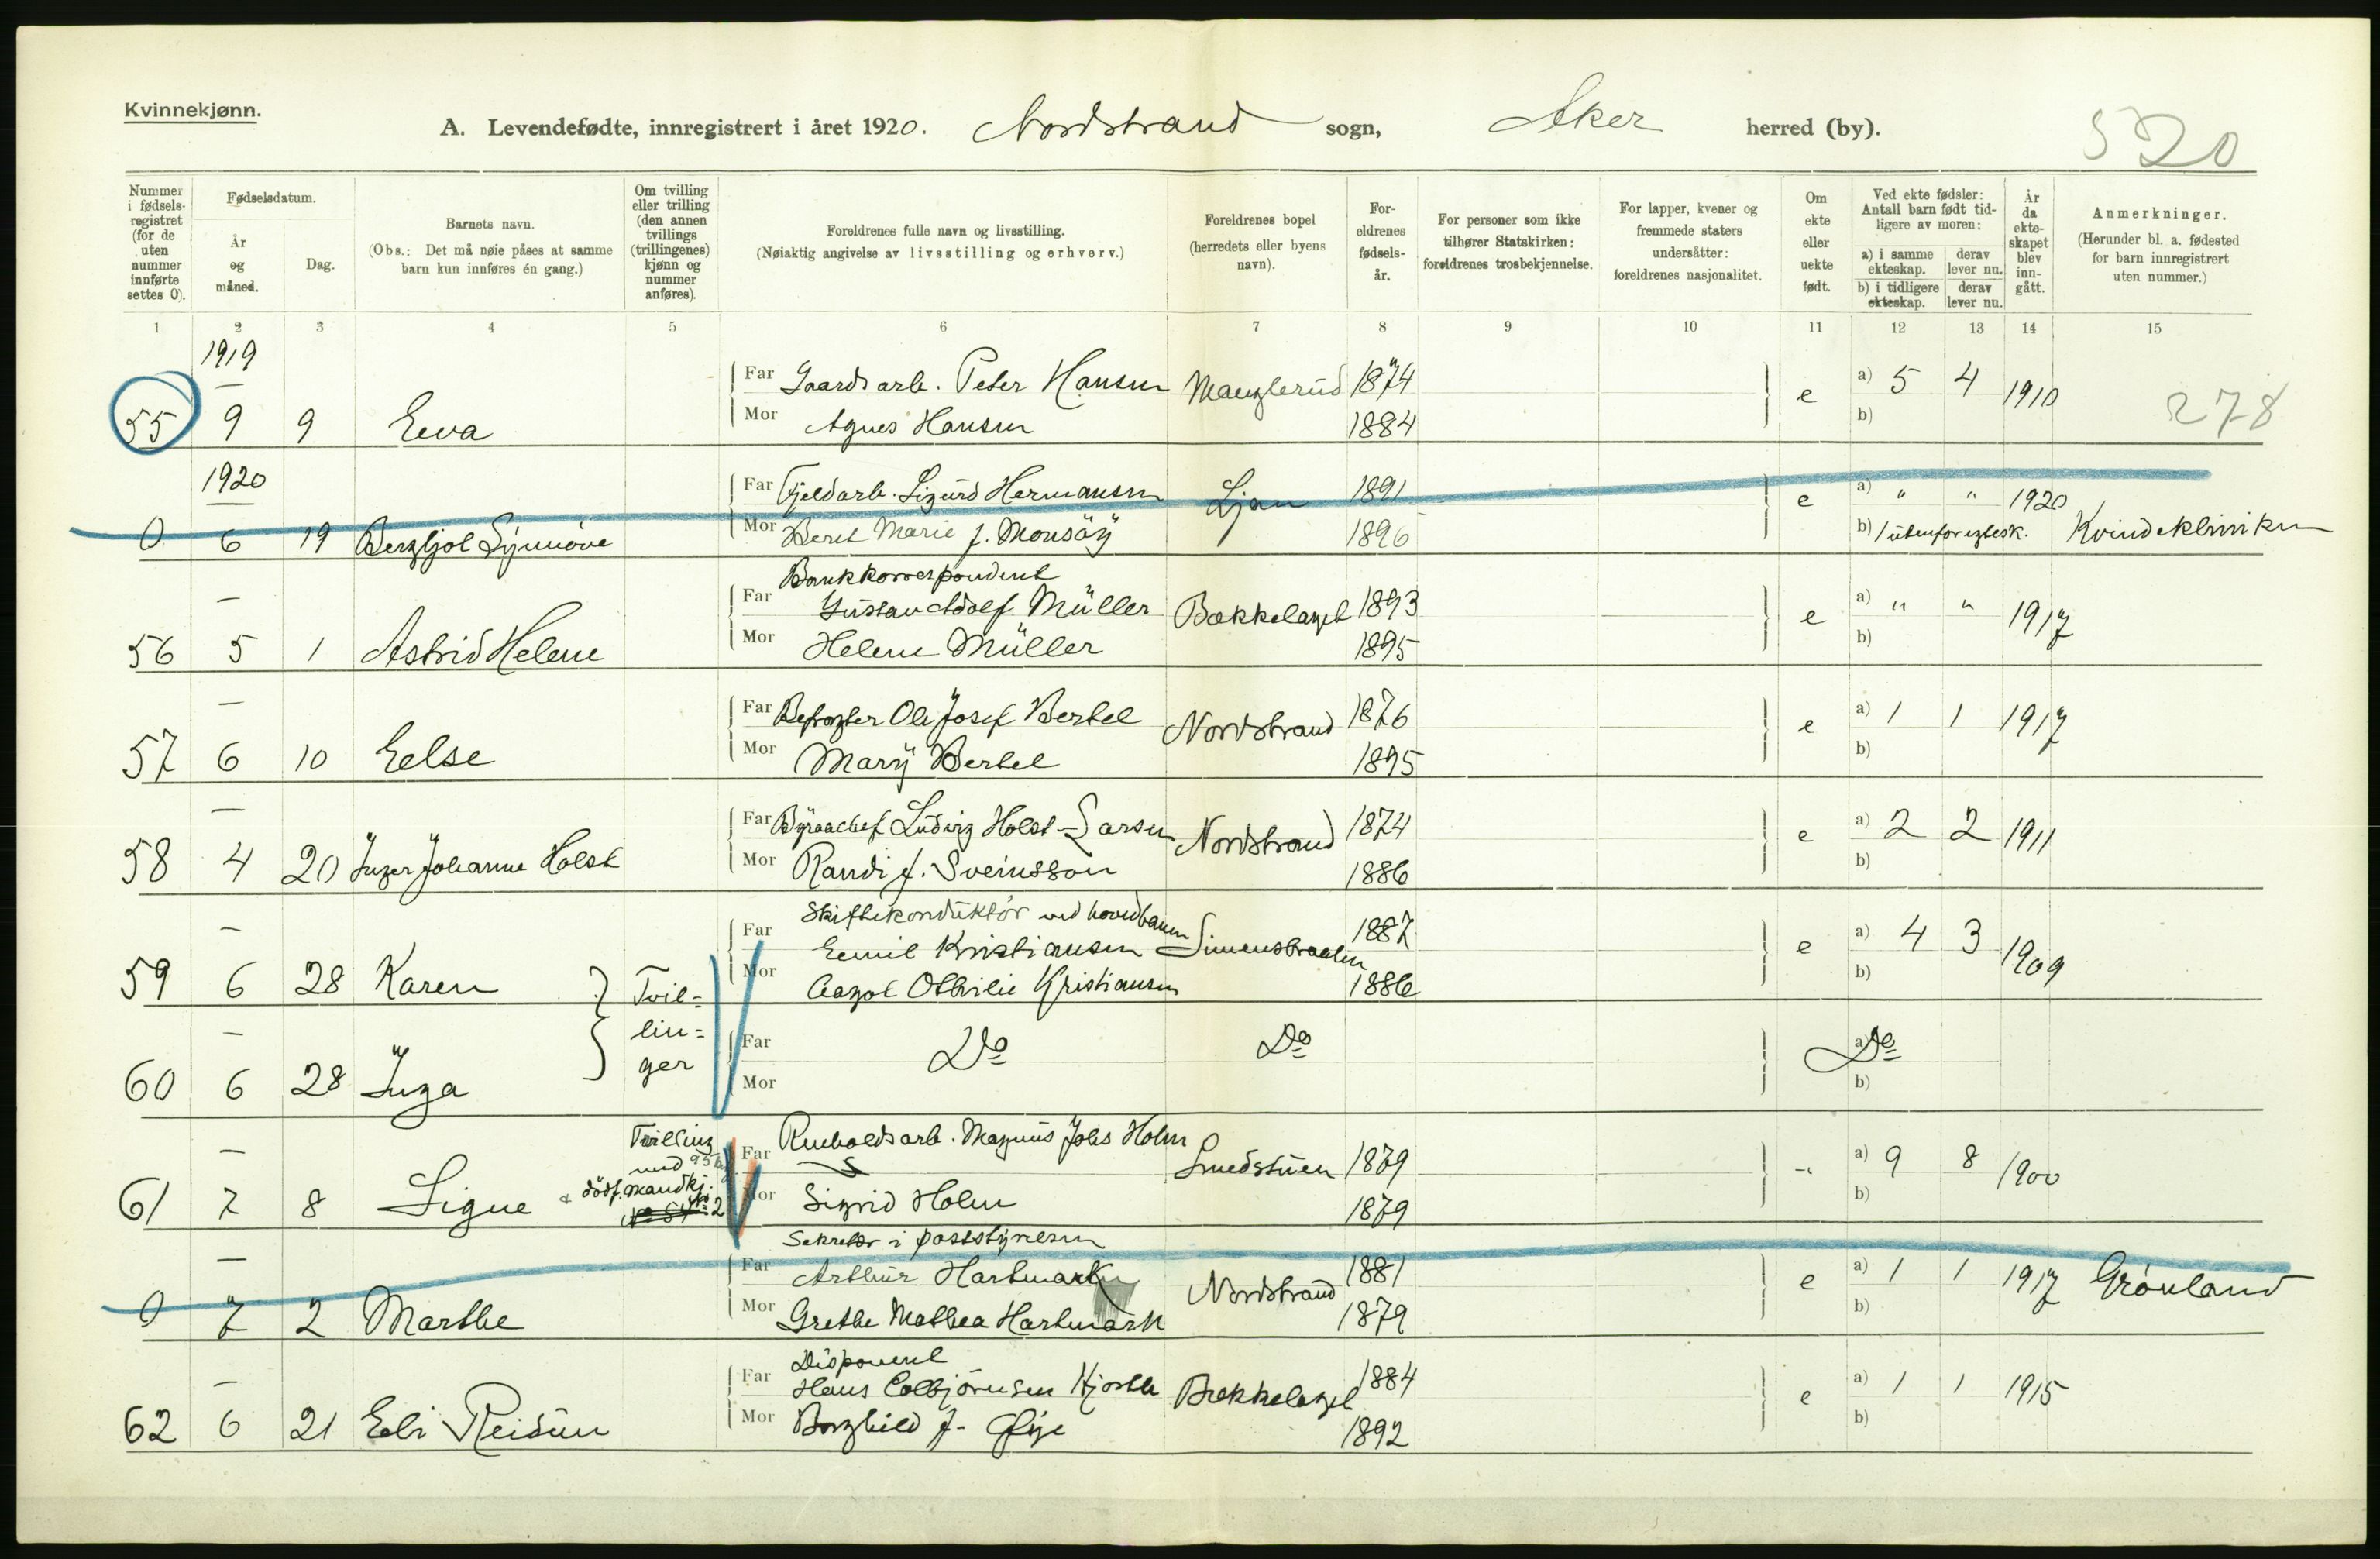 Kvinnekjønn.
A. Levendefødte, innregistrert i året 1920. Nordstrand sogn, Aker herred (by).
520
Nummer i fødsels-registret (for de uten nummer innførte settes 0).
Fødselsdatum.
År og måned.
Dag.
Barnets navn.
(Obs.: Det må nøie påses at samme barn kun innføres én gang.)
Om tvilling eller trilling (den annen tvillings (trillingenes) kjønn og nummer anføres).
Foreldrenes fulle navn og livsstilling.
(Nøiaktig angivelse av livsstilling og erhverv.)
Foreldrenes bopel (herredets eller byens navn).
For-eldrenes fødsels-år.
For personer som ikke tilhører Statskirken: foreldrenes trosbekjennelse.
For lapper, kvener og fremmede staters undersåtter: foreldrenes nasjonalitet.
Om ekte eller uekte født.
Ved ekte fødsler: Antall barn født tid-ligere av moren:
a) i samme ekteskap.
derav lever nu.
b) i tidligere ekteskap.
derav lever nu.
År da ekte-skapet blev inn-gått.
Anmerkninger.
(Herunder bl. a. fødested for barn innregistrert uten nummer.)
1 2 3 4 5 6 7 8 9 10 11 12 13 14 15
1919
Far Gaardsarb. Peter Hansen Manglerud 1874 e a) 5 4 1910 278
55 9 9 Eva Mor Agnes Hansen 1884 b)
1920
Far Fjeldarb. Sigurd Hermansen Ljan 1891 e a) " " 1920
0 6 19 Bergljot Synnöve Mor Beret Marie f. Monsöy 1896 b) 1 utenfor egtesk. Kvindekliniken
Bankkorrespondent
— Far Gustav Adolf Müller Bækkelaget 1893 e a) " " 1917
56 5 1 Astrid Helene Mor Helene Müller 1895 b)
— Far Befragter Ole Josef Bertel Nordstrand 1876 e a) 1 1 1917
57 6 10 Else Mor Mary Bertel 1895 b)
— Far Byraachef Ludvig Holst-Larsen Nordstrand 1874 e a) 2 2 1911
58 4 20 Inger Johanne Holst Mor Randi f. Sveinsson 1886 b)
Skiftekonduktör ved hovedbanen
— Far Emil Kristiansen Simensbraaten 1887 e a) 4 3 1909
59 6 28 Karen Tvil= Mor Aagot Othilie Kristiansen 1886 b)
— lin= Far Do Do Do a)
60 6 28 Inga ger Mor b)
Tvilling
— med Far Renholdsarb. Magnus Johs Holm Smedstuen 1879 -" a) 9 8 1900
61 7 8 Signe dödf. mandkj. No 2 Mor Sigrid Holm 1879 b)
Sekretær i poststyrelsen
— Far Arthur Hartmark Nordstrand 1881 e a) 1 1 1917 Grönland
0 7 2 Marthe Mor Grethe Mathea Hartmark 1879 b)
Disponent
— Far Hans Colbjörnsen Hjorth Bækkelaget 1884 e a) 1 1 1915
62 6 21 Eli Reidun Mor Borghild f. Øye 1892 b)